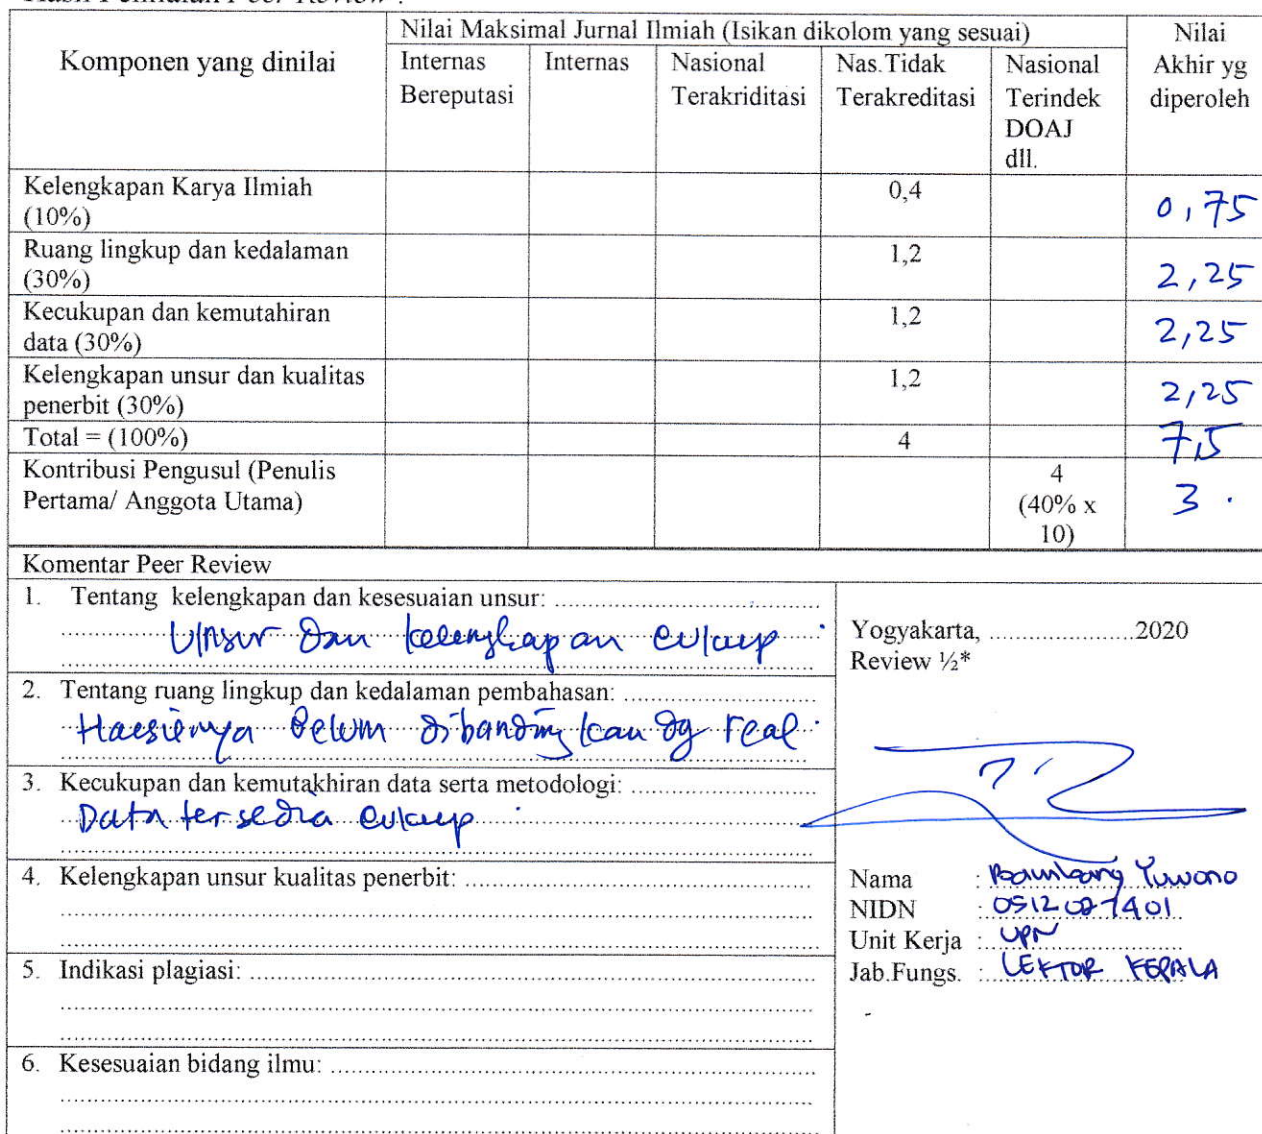 Hasil Penilaian Peer Review :
Komponen yang dinilai
Nilai Maksimal Jurnal Ilmiah (Isikan dikolom yang sesuai)
Nilai
Akhir yg
diperoleh
Internas
Bereputasi
Internas
Nasional
Terakriditasi
Nas.Tidak
Terakreditasi
Nasional
Terindek
DOAJ
dll.
Kelengkapan Karya Ilmiah
(10%)
0,4
0,75
Ruang lingkup dan kedalaman
(30%)
1,2
2,25
Kecukupan dan kemutahiran
data (30%)
1,2
2,25
Kelengkapan unsur dan kualitas
penerbit (30%)
1,2
2,25
Total = (100%)
4
7,5
Kontribusi Pengusul (Penulis
Pertama/ Anggota Utama)
4
(40% x
10)
3 .
Komentar Peer Review
1. Tentang kelengkapan dan kesesuaian unsur: ....................................
Unsur dan kelengkapan cukup .
2. Tentang ruang lingkup dan kedalaman pembahasan: .........................
Hasilnya belum dibandingkan dg real .
3. Kecukupan dan kemutakhiran data serta metodologi: ........................
Data tersedia cukup .
4. Kelengkapan unsur kualitas penerbit: ..............................................
5. Indikasi plagiasi: ..........................................................................
6. Kesesuaian bidang ilmu: ................................................................
Yogyakarta, .....................2020
Review ½*
Nama : Bambang Yuwono
NIDN : 0512027401
Unit Kerja : UPN
Jab.Fungs. : LEKTOR KEPALA
-